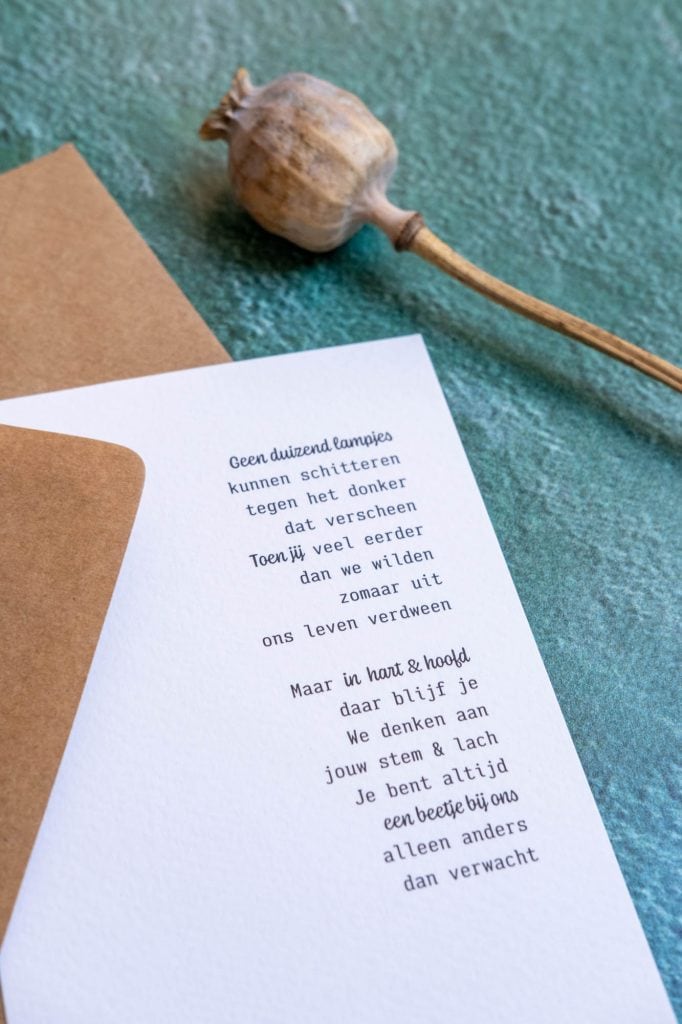 Geen duizend lampjes
kunnen schitteren
tegen het donker
dat verscheen
Toen jij veel eerder
dan we wilden
zomaar uit
ons leven verdween
Maar in hart & hoofd
daar blijf je
We denken aan
jouw stem & lach
Je bent altijd
een beetje bij ons
alleen anders
dan verwacht